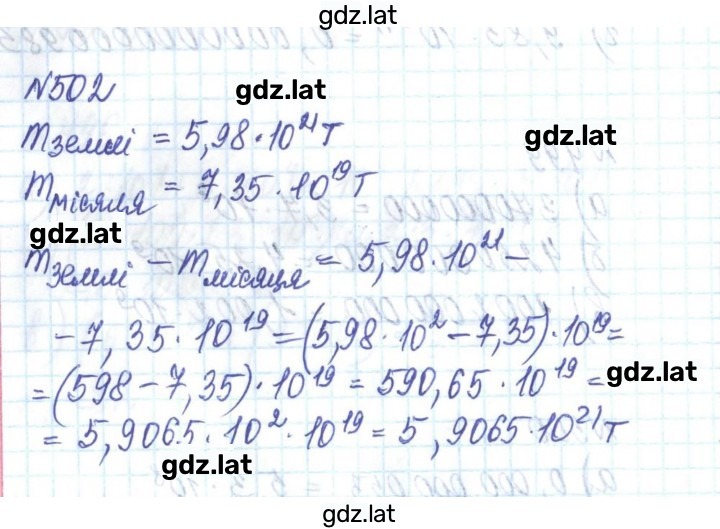 gdz.lat
№502
gdz.lat
mЗемлі = 5,98·10²¹т
gdz.lat
mмісяця = 7,35·10¹⁹т
gdz.lat
mЗемлі − mмісяця = 5,98·10²¹ −
− 7,35·10¹⁹ = (5,98·10² − 7,35)·10¹⁹ =
= (598 − 7,35)·10¹⁹ = 590,65·10¹⁹ =
gdz.lat
= 5,9065·10²·10¹⁹ = 5,9065·10²¹т
gdz.lat
gdz.lat